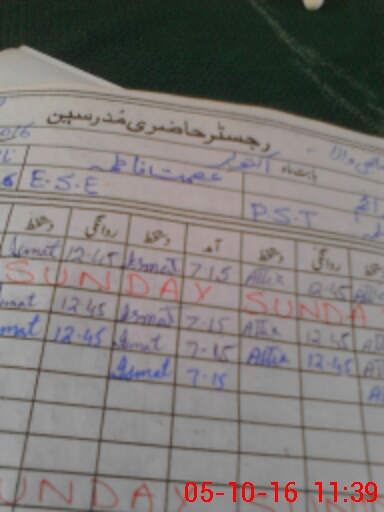 رجسٹر حاضری مُدرسین
بابت ماہ اکتوبر عصمت فاطمہ
E.S.E P.S.T
دستخط آمد دستخط روانگی دستخط
Ismat 12.45 Ismat 7.15 Attia 12.45
SUNDAY SUNDA
12.45 Ismat 7.15 Attia 12.45
12.45 Ismat 7.15 Attia 12.45
Ismat 7.15
UNDAY SUN
05-10-16 11:39